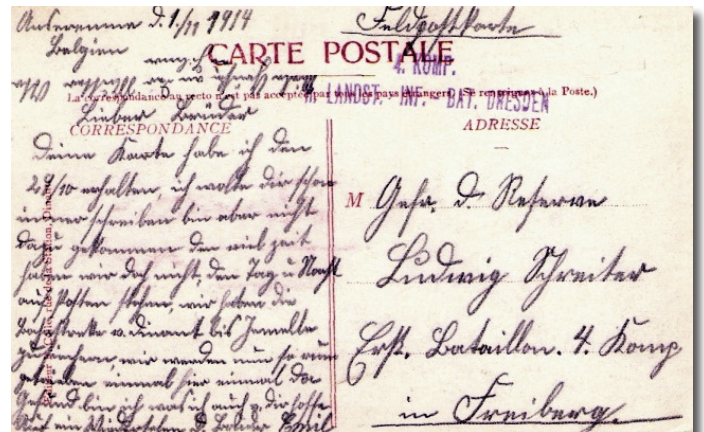 Anseremme d. 1./11 1914
Belgien
Feldpostkarte
CARTE POSTALE
4. KOMP.
LANDST. INF. - BAT. DRESDEN
La correspondance au recto n'est pas acceptée par tous les pays étrangers. (Se renseigner à la Poste.)
CORRESPONDANCE
ADRESSE
Lieber Bruder
Deine Karte habe ich den
29/10 erhalten, ich wollte dir schon
immer schreiben bin aber nicht
dazu gekommen den viel zeit
haben wir doch nicht, den Tag u Nacht
auf Posten stehen, wir haben die
Bahnstrecke v. Dinant bis Jemelle
zu sichern, wir werden nun so rum
getrieben einmal hier einmal da
Gesund bin ich was ich auch v. dir hoffe
Auf ein Wiedersehen d. Bruder Emil
M Gefr. d. Reserve
Ludwig Schreiter
Ers. Bataillon. 4. Komp
in Freiberg.